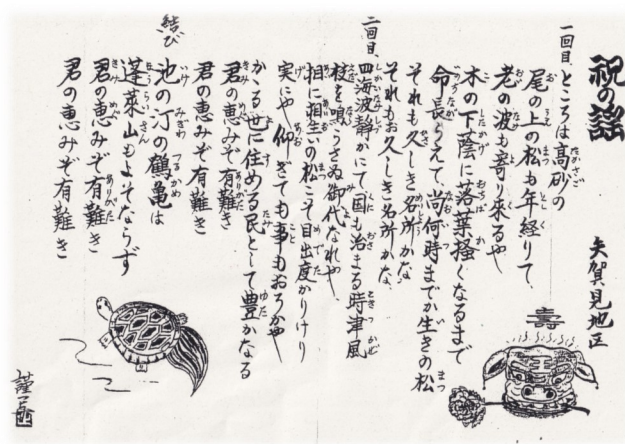 祝の謡
矢賀見地区
一回目、ところは高砂の
尾の上の松も年経りて、
老の波も寄り来るや
木の下蔭に落葉掻くなるまで
命長らえて、尚何時までか生きの松
それも久しき名所かな
それもお久しき名所かな、
二回目、四海波静かにて、国も治まる時津風
枝を鳴らさぬ御代なれや、
相に相生いの松こそ目出度かりけり
実にや仰ぎても事もおろかや
かゝる世に住める民として豊かなる
君の恵みぞ有難き
君の恵みぞ有難き
結び
池の汀の鶴亀は
蓬莱山もよそならず
君の恵みぞ有難き
君の恵みぞ有難き
壽